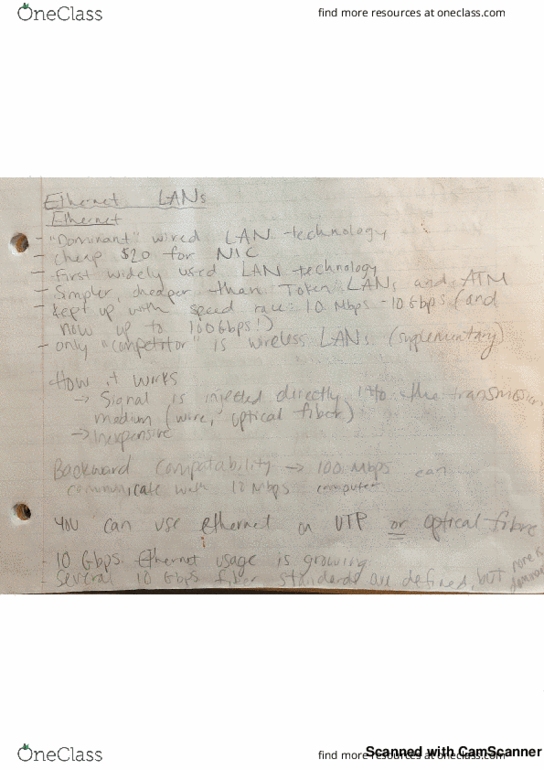 OneClass
find more resources at oneclass.com
Ethernet LANs
Ethernet
- "Dominant" wired LAN technology
- cheap $20 for NIC
- First widely used LAN technology
- Simpler, cheaper than Token LANs and ATM
- Kept up with speed race: 10 Mbps - 10 Gbps (and
now up to 100Gbps!)
- only "competitor" is wireless LANs (suplementary)
How it works
→ Signal is injected directly into the transmission
medium (wire, optical fiber)
→ Inexpensive
Backward compatability → 100 Mbps can
communicate with Mbps computer
You can use ethernet on UTP or optical fibre
- 10 Gbps Ethernet usage is growing
- Several 10 Gbps fiber standards are defined, but none is
OneClass
find more resources at oneclass.com
Scanned with CamScanner